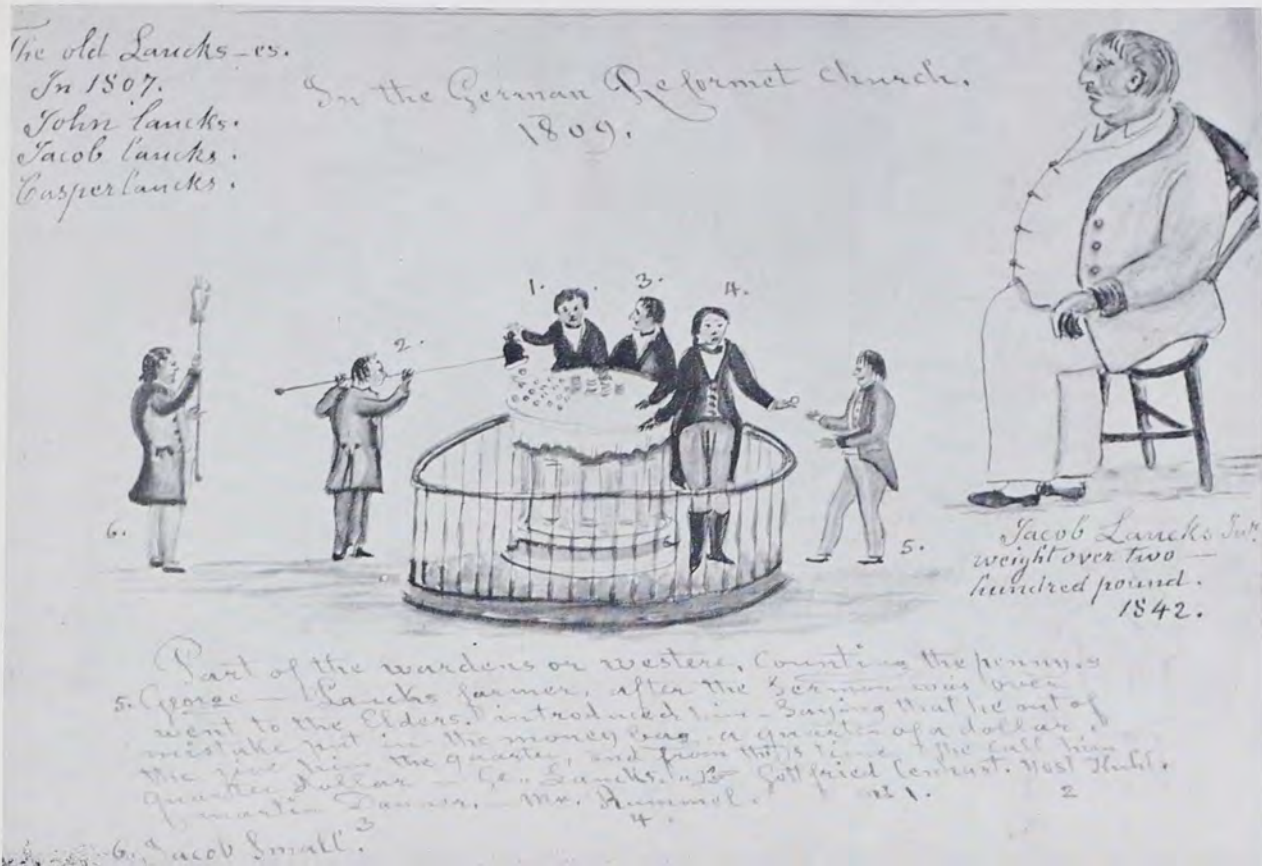 The old Laucks-es.
In 1807.
John laucks.
Jacob laucks.
Casper laucks.
In the German Reformet Church.
1809.
1.
3.
4.
2.
6.
5.
Jacob Laucks Jur.
weight over two —
hundred pound.
1842.
Part of the wardens or western, Counting the pennys
5. George — Laucks farmer, after the Sermon was over
went to the Elders, introduced him — Saying that he out of
mistake put in the money bag a quarter of a dollar,
the give him the quarter, and from this time the call him
quarter Dollar — Geo. Laucks. Gottfried
martin Danner. — Mr. Hummel. 1. 2
3 4
6. Jacob Small.